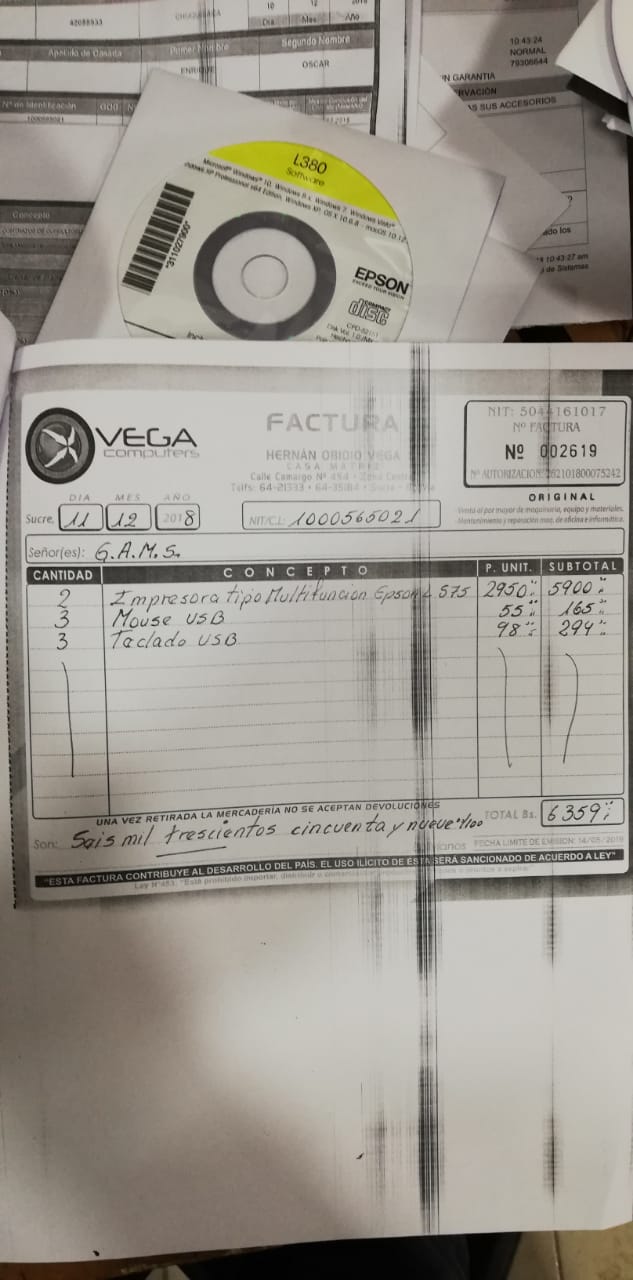 42088933
10 12
Dia Mes Año
Apellido de Casada Primer Nombre Segundo Nombre
ENRIQUE OSCAR
Nº de Identificación
Concepto
10:43:24
NORMAL
79306644
N GARANTIA
RVACIÓN
AS SUS ACCESORIOS
do los
10:43:27 am
de Sistemas
L380
Software
Microsoft® Windows® 10, Windows 8.x, Windows 7, Windows Vista®
Windows XP Professional x64 Edition, Windows XP, OS X 10.6.8 - macOS 10.12
*311027900*
EPSON
EXCEED YOUR VISION
COMPACT
disc
VEGA
computers
FACTURA
HERNÁN OBIDIO VEGA
CASA MATRIZ
Calle Camargo Nº 484 - Zona
Telfs: 64-21333 • 64-35184 - Sucre
NIT: 5044161017
Nº FACTURA
Nº 002619
Nº AUTORIZACION: 262101800075242
ORIGINAL
Venta al por mayor de maquinaria, equipo y materiales.
Mantenimiento y reparación maq. de oficina e informática.
DIA MES AÑO
Sucre, 11 12 2018
NIT/C.I.: 1000565021
Señor(es): G.A.M.S.
CANTIDAD CONCEPTO P. UNIT. SUBTOTAL
2 Impresora tipo Multifuncion Epson L 575 2950 5900
3 Mouse USB 55 165
3 Taclado USB 98 294
UNA VEZ RETIRADA LA MERCADERÍA NO SE ACEPTAN DEVOLUCIONES
TOTAL Bs. 6359
Son: Sais mil trescientos cincuenta y nueve /100
FECHA LIMITE DE EMISION: 14/05/2019
"ESTA FACTURA CONTRIBUYE AL DESARROLLO DEL PAÍS. EL USO ILÍCITO DE ESTA SERÁ SANCIONADO DE ACUERDO A LEY"
Ley Nº453: "Está prohibido importar, distribuir o